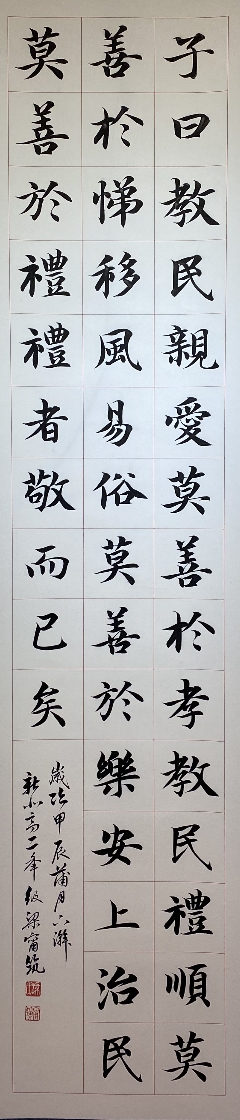 子曰教民親愛莫善於孝教民禮順莫
善於悌移風易俗莫善於樂安上治民
莫善於禮禮者敬而已矣
歲次甲辰蒲月下澣
新北高二年級梁甯筑